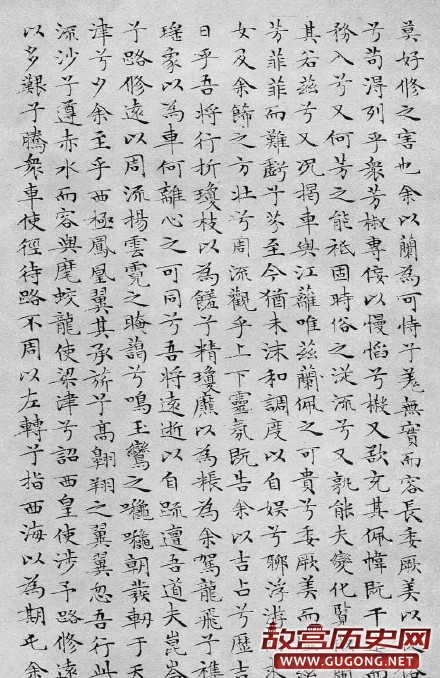 莫好修之害也余以蘭為可恃兮羌無實而容長委厥美以從
兮苟得列乎衆芳椒專佞以慢慆兮樧又欲充其佩幃既干進而
務入兮又何芳之能祗固時俗之從流兮又孰能夫變化覽
其若兹兮又況揭車與江離唯兹蘭佩之可貴兮委厥美而
芳菲菲而難虧兮芬至今猶未沫和調度以自娛兮聊浮游
女及余飾之方壯兮周流觀乎上下靈氛既告余以吉占兮歷吉
日乎吾將行折瓊枝以為饈兮精瓊爢以為粻為余駕龍飛兮襍
瑤象以為車何離心之可同兮吾將遠逝以自疏邅吾道夫崑崙
兮路修遠以周流揚雲霓之晻藹兮鳴玉鸞之朝發軔于天
津兮夕余至乎西極鳳凰翼其承旂兮高翱翔之翼翼忽吾行此
流沙兮遵赤水而容與麾蛟龍使梁津兮詔西皇使涉予路修遠
以多艱兮騰衆車使徑待路不周以左轉兮指西海以為期屯余
故宫历史网
WWW.GUGONG.NET